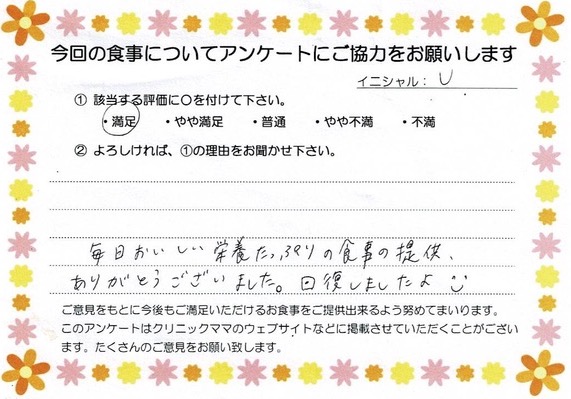 今回の食事についてアンケートにご協力をお願いします
イニシャル： U
① 該当する評価に〇を付けて下さい。
・満足 ・やや満足 ・普通 ・やや不満 ・不満
② よろしければ、①の理由をお聞かせ下さい。
毎日おいしい栄養たっぷりの食事の提供、
ありがとうございました。回復しましたよ
ご意見をもとに今後もご満足いただけるお食事をご提供出来るよう努めてまいります。
このアンケートはクリニックママのウェブサイトなどに掲載させていただくことがござい
ます。たくさんのご意見をお願い致します。